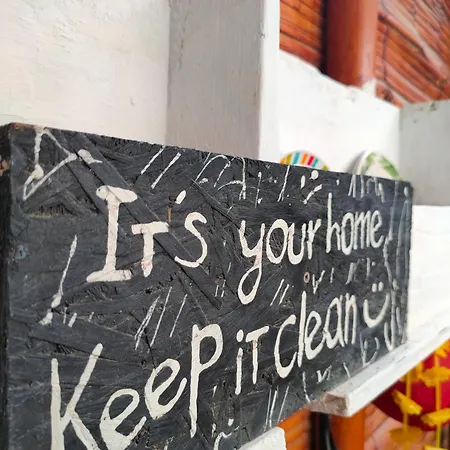 It's your home
Keep it clean :)